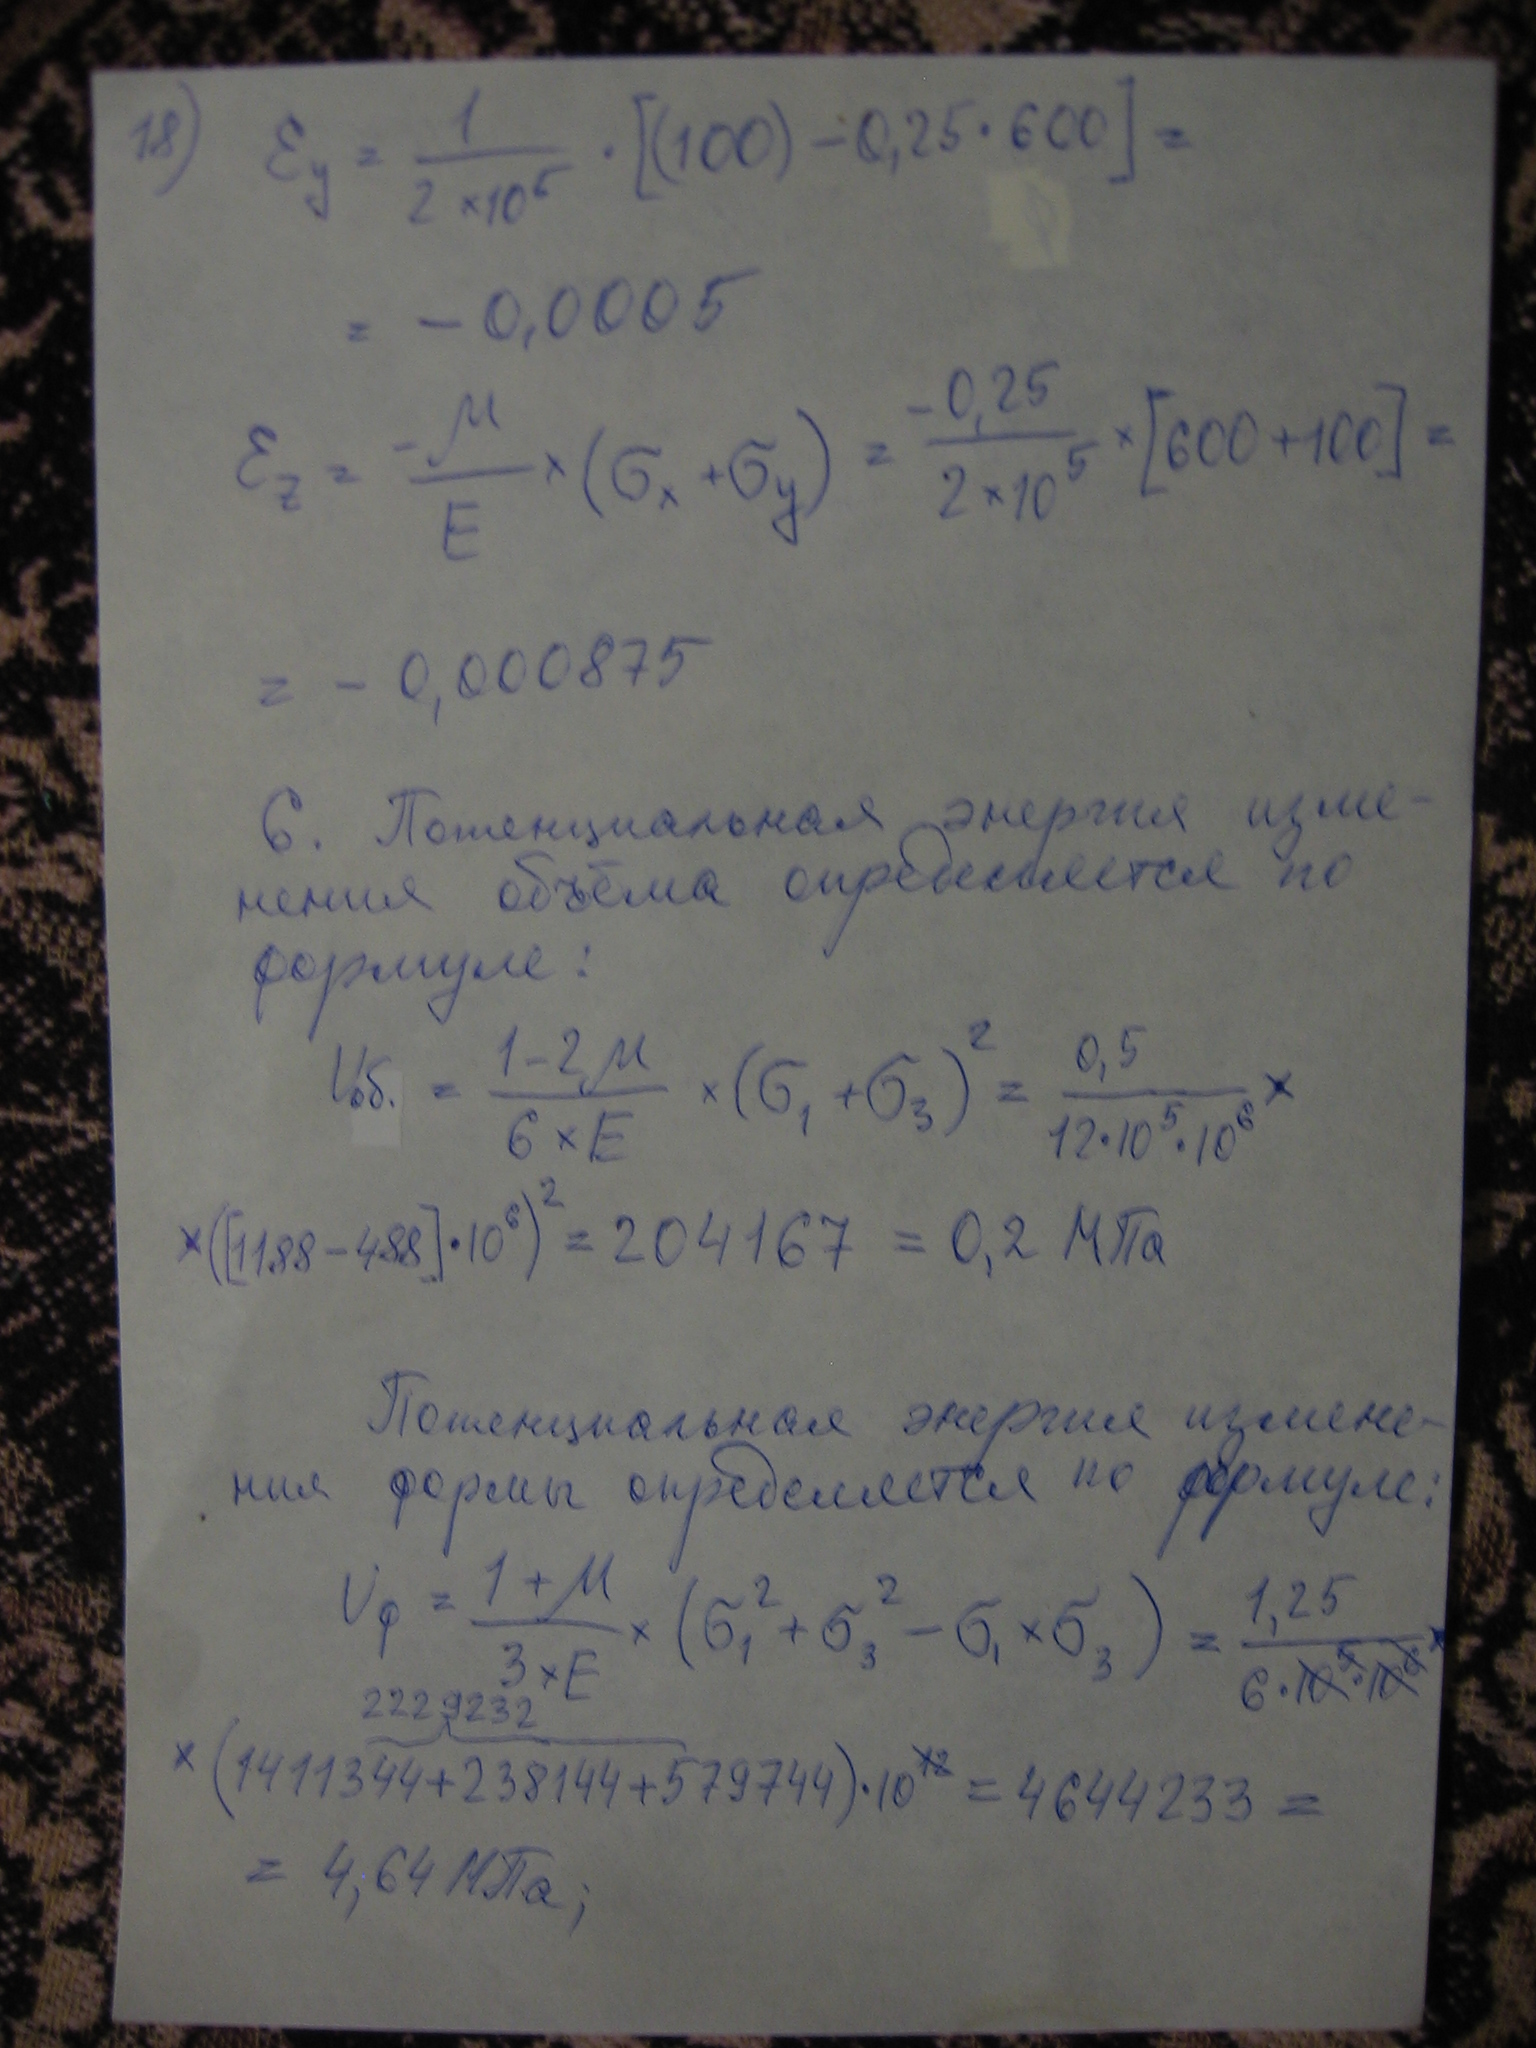 18) εy = 1 / 2×10⁵ · [(100) − 0,25·600] =
= − 0,0005
εz = −μ / E × (σx + σy) = −0,25 / 2×10⁵ × [600+100] =
= − 0,000875
6. Потенциальная энергия изме-
нения объёма определяется по
формуле:
Uоб. = 1−2μ / 6×E × (σ₁ + σ₃)² = 0,5 / 12·10⁵·10⁶ ×
× ([1188 − 488]·10⁶)² = 204167 = 0,2 МПа
Потенциальная энергия измене-
ния формы определяется по формуле:
Uф = 1+μ / 3×E × (σ₁² + σ₃² − σ₁×σ₃) = 1,25 / 6·10⁵·10⁶ ×
2229232
× (1411344+238144+579744)·10¹² = 4644233 =
= 4,64 МПа;